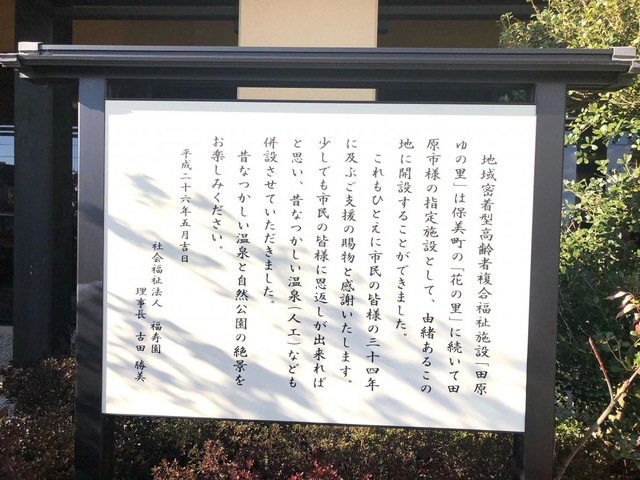 地域密着型高齢者複合福祉施設「田原
ゆの里」は保美町の「花の里」に続いて田
原市様の指定施設として、由緒あるこの
地に開設することができました。
これもひとえに市民の皆様の三十四年
に及ぶご支援の賜物と感謝いたします。
少しでも市民の皆様に恩返しが出来れば
と思い、昔なつかしい温泉（人工）なども
併設させていただきました。
昔なつかしい温泉と自然公園の絶景を
お楽しみください。
平成二十六年五月吉日
社会福祉法人　福寿園
理事長　古田　勝美